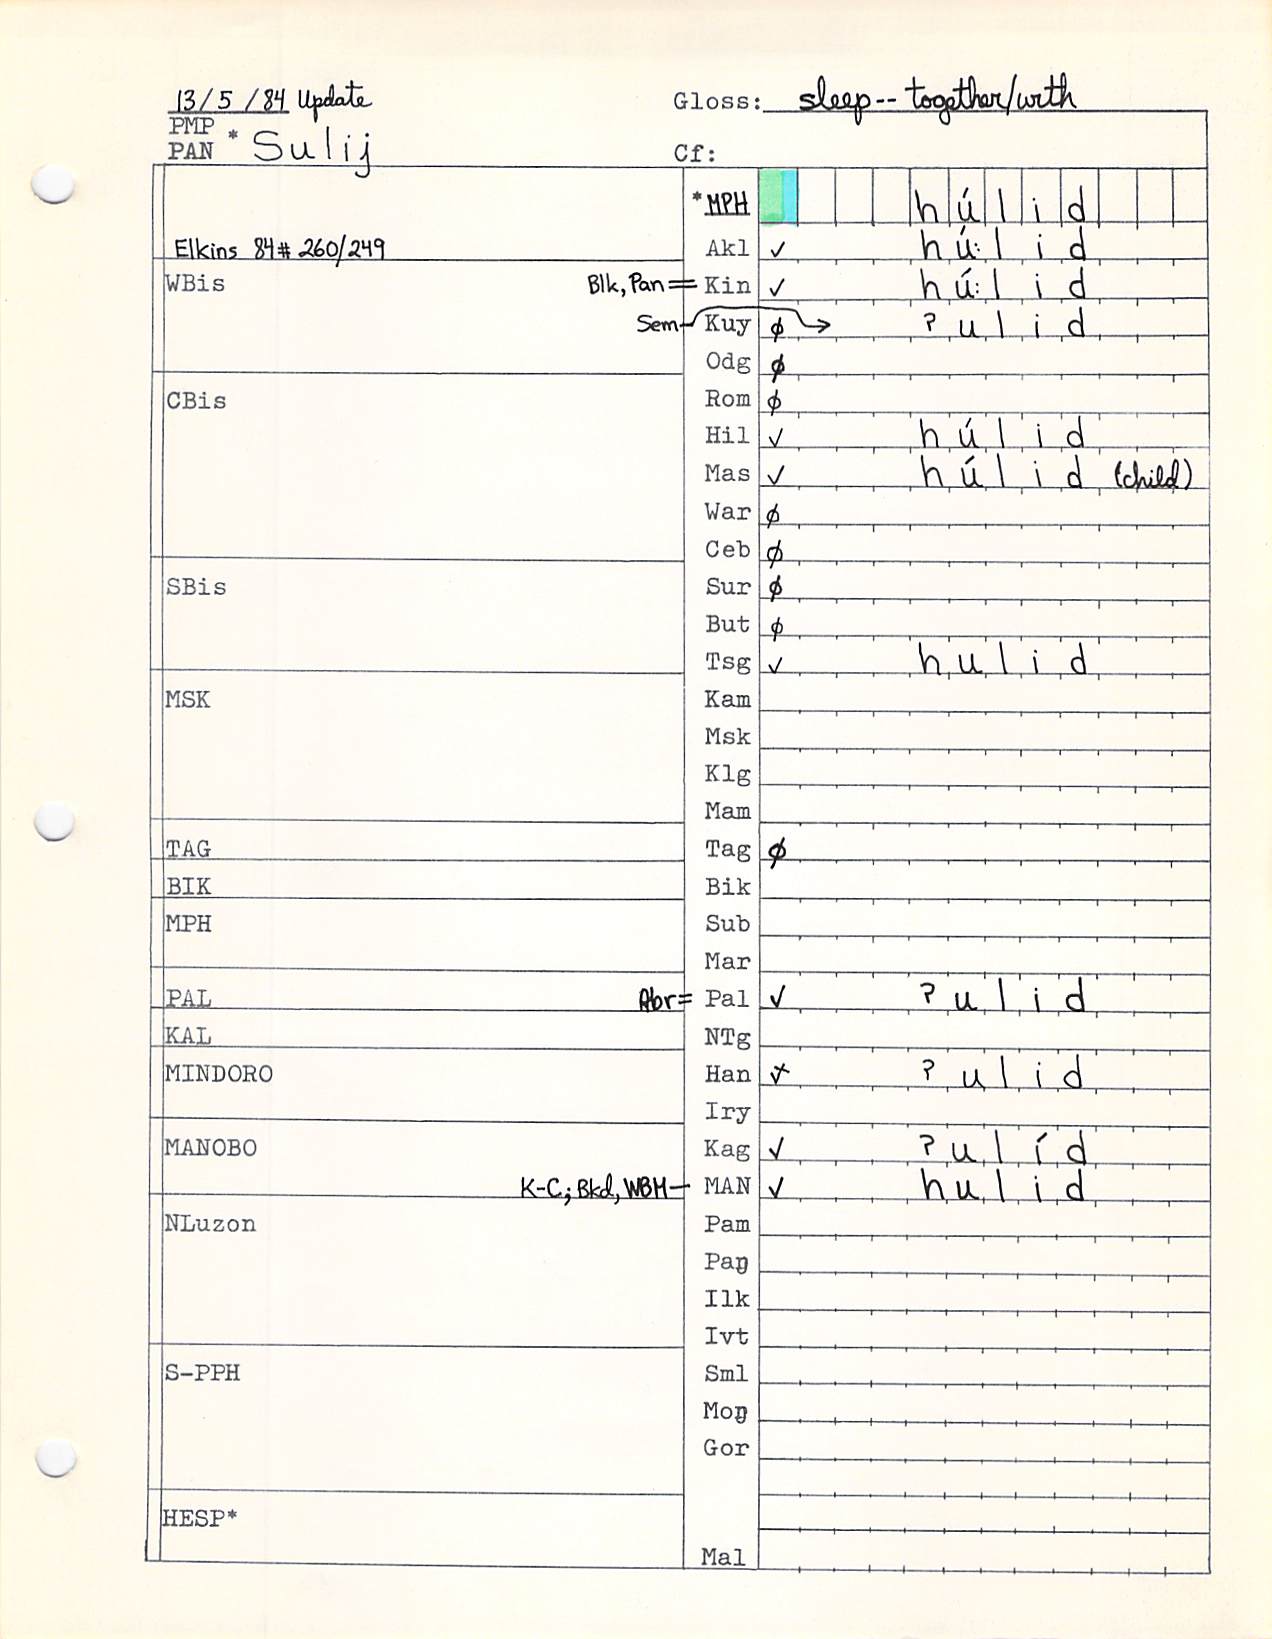 13/5/84 Update Gloss: sleep -- together/with
PMP
PAN * Sulij Cf:
*MPH húlid
Elkins 84# 260/249 Akl ✓ hú:lid
WBis Blk, Pan = Kin ✓ hú:lid
Sem → Kuy ∅ ʔulid
Odg ∅
CBis Rom ∅
Hil ✓ húlid
Mas ✓ húlid (child)
War ∅
Ceb ∅
SBis Sur ∅
But ∅
Tsg ✓ hulid
MSK Kam
Msk
Klg
Mam
TAG Tag ∅
BIK Bik
MPH Sub
Mar
PAL Abr = Pal ✓ ʔulid
KAL NTg
MINDORO Han ʔulid
Iry
MANOBO Kag ✓ ʔulíd
K-C; Bkd, WBM — MAN ✓ hulid
NLuzon Pam
Paŋ
Ilk
Ivt
S-PPH Sml
Moŋ
Gor
HESP*
Mal